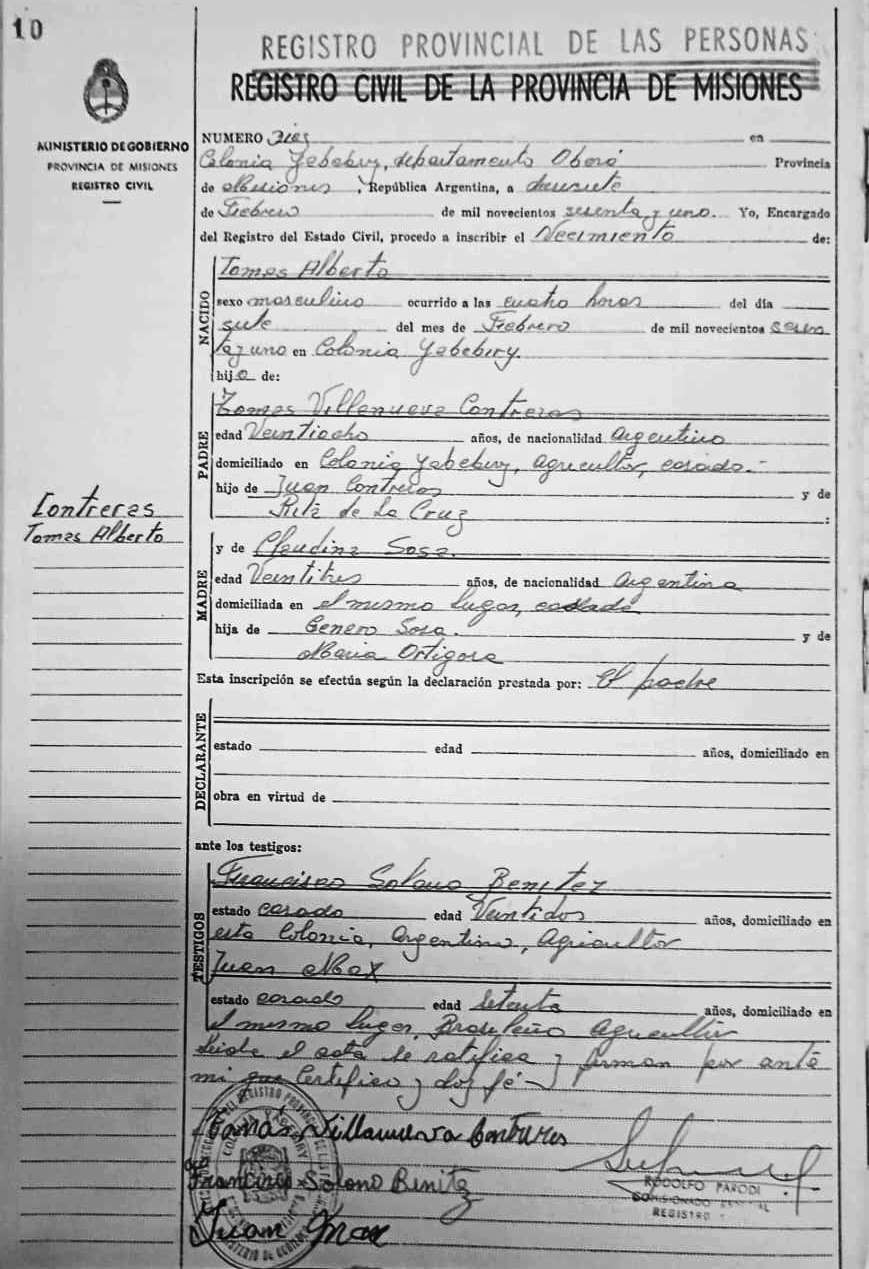 10
REGISTRO PROVINCIAL DE LAS PERSONAS
REGISTRO CIVIL DE LA PROVINCIA DE MISIONES
MINISTERIO DE GOBIERNO
PROVINCIA DE MISIONES
REGISTRO CIVIL
NUMERO Diez en
Colonia Yabebiry, departamento Oberá Provincia
de Misiones, República Argentina, a
de Febrero de mil novecientos sesenta y uno. Yo, Encargado
del Registro del Estado Civil, procedo a inscribir el Necimiento de:
NACIDO
Tomas Alberto
sexo masculino ocurrido a las cuatro horas del día
siete del mes de Febrero de mil novecientos sesen
ta y uno en Colonia Yabebiry.
hijo de:
PADRE
Tomas Villanueva Contreras
edad Veintiocho años, de nacionalidad Argentino
domiciliado en Colonia Yabebiry, agricultor, casado.-
hijo de Juan Contreras y de
Rita de La Cruz :
Contreras
Tomas Alberto
MADRE
y de Claudina Sosa.
edad Veintitres años, de nacionalidad Argentina
domiciliada en el mismo lugar, casada
hija de Genero Sosa. y de
Maria Ortigosa
Esta inscripción se efectúa según la declaración prestada por: El padre
DECLARANTE
estado edad años, domiciliado en
obra en virtud de
ante los testigos:
TESTIGOS
Francisco Solano Benitez
estado casado edad Veintidos años, domiciliado en
esta Colonia, Argentino, Agricultor
Juan Max
estado casado edad setenta años, domiciliado en
el mismo lugar, Brasileño Agricultor
Leida el acta se ratifica y firman por ante
mi que Certifico y doy fé-
Tomás Villanueva Contreres
Francisco Solono Benitez
Juan Max
RODOLFO PARODI
REGISTRO